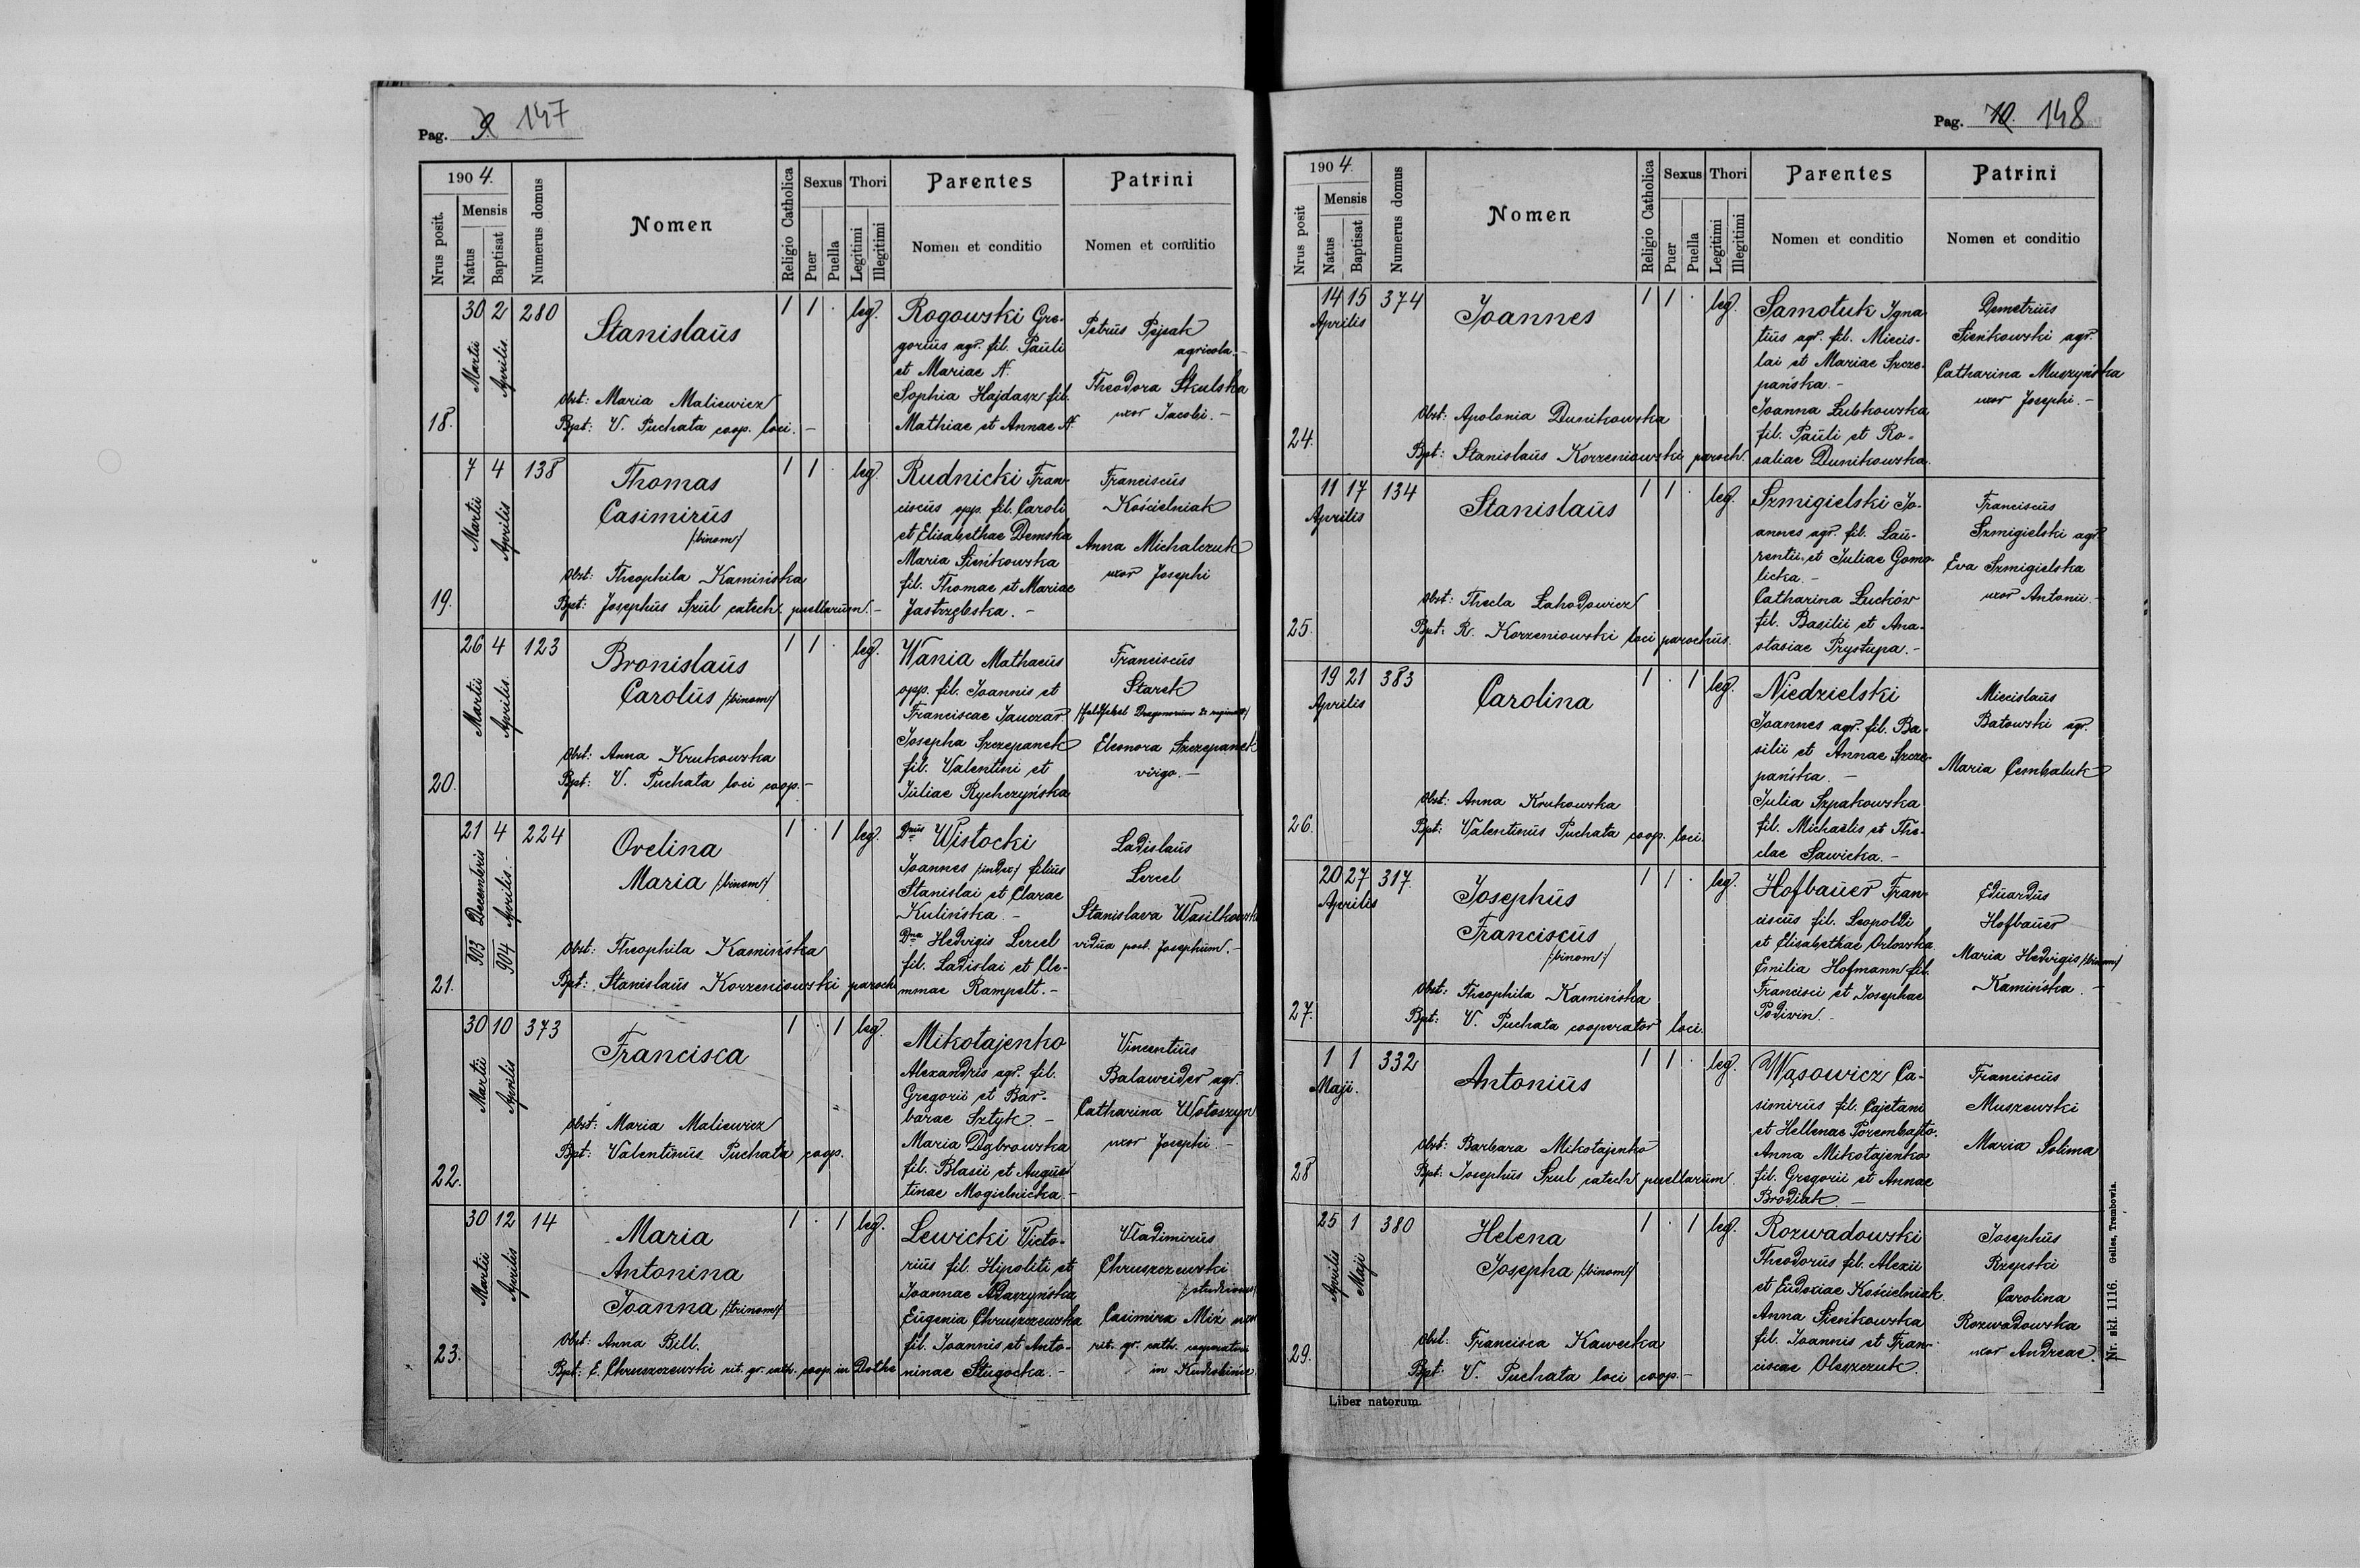 Pag. 9. 147
1904.
Nrus posit.
Mensis
Natus
Baptisat
Numerus domus
Nomen
Religio Catholica
Sexus
Puer
Puella
Thori
Legitimi
Illegitimi
Parentes
Nomen et conditio
Patrini
Nomen et conditio
18.
30 Martii
2 Aprilis
280
Stanislaüs
Obst: Maria Maliewicz
Bpt: V. Puchata coop. loci. -
1 1 · leg.
Rogowski Gre-
goriüs agr. fil. Paüli
et Mariae N.
Sophia Hajdasz fil.
Mathiae et Annae N.
Petrüs Pejsak
agricola. -
Theodora Skulska
uxor Jacobi. -
19.
7 Martii
4 Aprilis
138
Thomas
Casimirüs
/:binom:/
Obst: Theophila Kamińska
Bpt: Josephüs Szül catech. puellarüm. -
1 1 · leg.
Rudnicki Fran-
ciscüs opp. fil. Caroli
et Elisabethae Demska
Maria Sieńkowska
fil. Thomae et Mariae
Jastrzębska. -
Franciscüs
Kościelniak
Anna Michalczuk
uxor Josephi
20.
26 Martii
4 Aprilis.
123
Bronislaüs
Carolüs /:binom:/
Obst: Anna Krukowska
Bpt: V. Puchata loci coop. -
1 1 · leg.
Wania Mathaeüs
opp. fil. Joannis et
Franciscae Janczar.
Josepha Szczepanek
fil. Valentini et
Jüliae Rychczyńska
Franciscüs
Starek
Eleonora Szczepanek
virgo. -
21.
21 Decembris 903
4 Aprilis. - 904
224
Ovelina
Maria /:binom:/
Obst: Theophila Kamińska
Bpt: Stanislaüs Korzeniowski paroch.
1 · 1 leg.
Dnüs Wistocki
Joannes filiüs
Stanislai et Clarae
Kulińska. -
Dna Hedvigis Lercel
fil. Ladislai et Cle-
mmae Rampelt. -
Ladislaüs
Lercel
Stanislava Wasilkowska
vidüa post. Josephüm. -
22.
30 Martii
10 Aprilis
373
Francisca
Obst: Maria Maliewicz
Bpt: Valentinüs Puchata coop.
1 · 1 leg.
Mikołajenko
Alexandris agr. fil.
Gregorii et Bar-
barae Sztyk. -
Maria Dąbrowska
fil. Blasii et Augüs
tinae Mogielnicka. -
Vincentiüs
Balaweider agr.
Catharina Wołoszyn
uxor Josephi. -
23.
30 Martii
12 Aprilis
14
Maria
Antonina
Joanna /:trinom:/
Obst: Anna Bill.
Bpt: E. Chruszczewski rit. gr. cath. coop. in Dołhe
1 · 1 leg.
Lewicki Victo-
riüs fil. Hipoliti et
Joannae
Eügenia Chruszczewska
fil. Joannis et Anto-
ninae Sługocka. -
Vladimirüs
Chruszczewski
Casimira Miż uxor
rit. gr. cath. cooperatori
in
Pag. 10. 148
1904.
Nrus posit
Mensis
Natus
Baptisat
Numerus domus
Nomen
Religio Catholica
Sexus
Puer
Puella
Thori
Legitimi
Illegitimi
Parentes
Nomen et conditio
Patrini
Nomen et conditio
24.
14 15
Aprilis
374
Joannes
Obst: Apolonia Dunikowska
Bpt: Stanislaüs Korzeniowski paroch.
1 1 · leg.
Samotuk Igna
tiüs agr. fil. Miecis-
lai et Mariae Szcze-
pańska. -
Joanna Lubkowska
fil. Paüli et Ro-
saliae Dunikowska.
Demetriüs
Sieńkowski agr.
Catharina Muszyńska
uxor Josephi. -
25.
11 17
Aprilis
134
Stanislaüs
Obst: Thecla Łahodowicz
Bpt: R. Korzeniowski loci parochüs.
1 1 · leg.
Szmigielski Jo-
annes agr. fil. Laü-
rentii et Juliae Gomo-
licka. -
Catharina Łucków
fil. Basilii et Ana-
stasiae Prystupa. -
Franciscüs
Szmigielski agr.
Eva Szmigielska
uxor Antonii. -
26.
19 21
Aprilis
383
Carolina
Obst: Anna Krukowska
Bpt: Valentinüs Puchata coop. loci.
1 · 1 leg.
Niedzielski
Joannes agr. fil. Ba-
silii et Annae Szcze-
pańska. -
Julia Szpakowska
fil. Michaëlis et The-
clae Sawicka. -
Miecislaüs
Batowski agr.
Maria Cembaluk
27.
20 27
Aprilis
317.
Josephüs
Franciscüs
/:binom:/
Obst: Theophila Kamińska
Bpt: V. Puchata cooperator loci.
1 1 · leg.
Hofbaüer Fran-
ciscüs fil. Leopoldi
et Elisabethae Orlowska.
Emilia Hofmann fil.
Francisci et Josephae
Podivin. -
Edüardüs
Hofbaüer
Maria Hedvigis /:binom:/
Kamińska. -
28
1 1
Maji.
332
Antoniüs
Obst: Barbara Mikołajenko
Bpt: Josephüs Szul catech puellarüm.
1 1 · leg.
Wąsowicz Ca-
simirüs fil. Cajetani
et Hellenae
Anna Mikołajenko
fil. Gregorii et Annae
Brodiak. -
Franciscüs
Muszewski
Maria Solima
29.
25 Aprilis
1 Maji
380
Helena
Josepha /:binom:/
Obst: Francisca Kawecka
Bpt: V. Puchata loci coop. -
1 · 1 leg.
Rozwadowski
Theodorüs fil. Alexii
et Eüdoxiae Kościelniak.
Anna Sieńkowska
fil. Joannis et Fran-
ciscae Oleszczuk.
Josephüs
Rzepski
Carolina
Rozwadowska
uxor Andreae.
Liber natorum.
Nr. skł. 1116. Gelles, Trembowla.